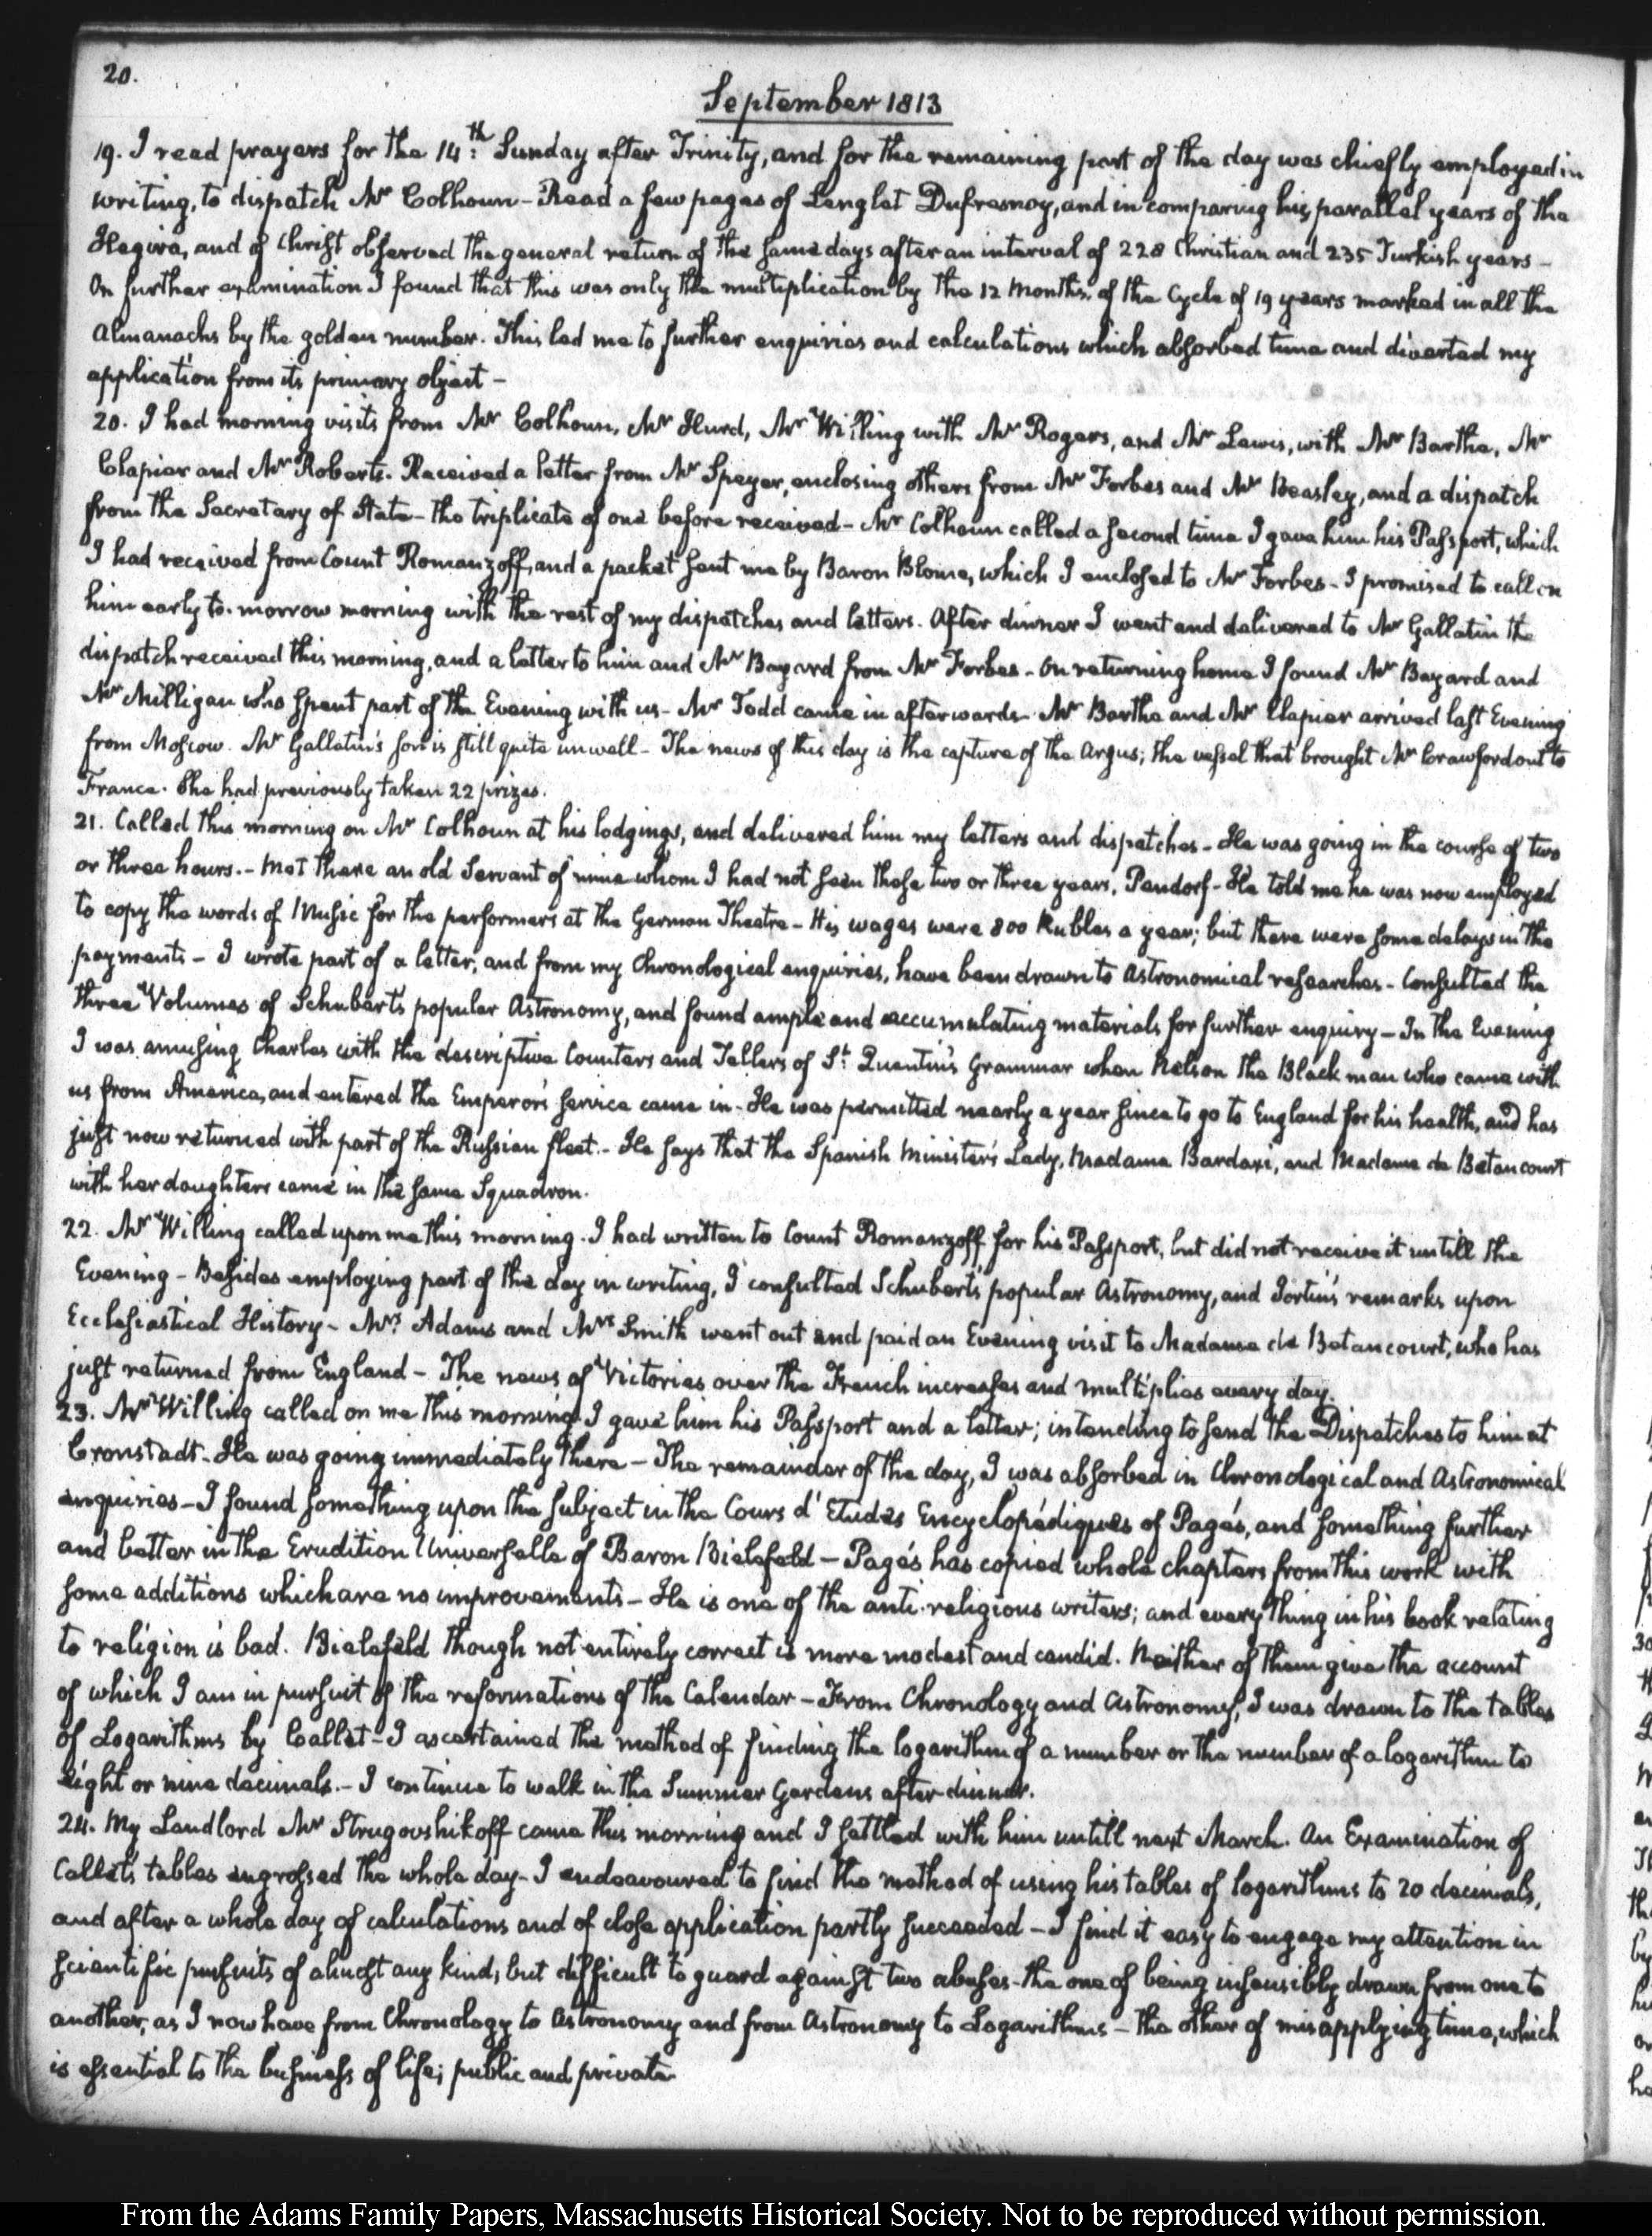 20.
September 1813
19. I read prayers for the 14th: Sunday after Trinity, and for the remaining part of the day was chiefly employed in
writing, to dispatch Mr Colhoun - Read a few pages of Lenglet Dufresnoy, and in comparing his parallel years of the
Hegira, and of Christ observed the general return of the same days after an interval of 228 Christian and 235 Turkish years -
On further examination I found that this was only the multiplication by the 12 Months, of the Cycle of 19 years marked in all the
Almanachs by the golden number. This led me to further enquiries and calculations which absorbed time and diverted my
application from its primary object -
20. I had morning visits from Mr Colhoun, Mr Hurd, Mr Willing with Mr Rogers, and Mr Lewis, with Mr Barthe, Mr
Clapier and Mr Roberts. Received a letter from Mr Speyer, enclosing others from Mr Forbes and Mr Beasley, and a dispatch
from the Secretary of State - the triplicate of one before received - Mr Colhoun called a second time I gave him his Passport, which
I had received from Count Romanzoff, and a packet sent me by Baron Blome, which I enclosed to Mr Forbes - I promised to call on
him early to-morrow morning with the rest of my dispatches and letters. After dinner I went and delivered to Mr Gallatin the
dispatch received this morning, and a letter to him and Mr Bayard from Mr Forbes - On returning home I found Mr Bayard and
Mr Milligan who spent part of the Evening with us - Mr Todd came in afterwards - Mr Barthe and Mr Clapier arrived last Evening
from Moscow. Mr Gallatin's son is still quite unwell - The news of this day is the capture of the Argus; the vessel that brought Mr Crawford out to
France. She had previously taken 22 prizes.
21. Called this morning on Mr Colhoun at his lodgings, and delivered him my letters and dispatches - He was going in the course of two
or three hours. - Met there an old Servant of mine whom I had not seen these two or three years, Pendorf - He told me he was now employed
to copy the words of Music for the performers at the German Theatre - His wages were 800 Rubles a year; but there were some delays in the
payments - I wrote part of a letter, and from my Chronological enquiries, have been drawn to Astronomical researches - Consulted the
three Volumes of Schubert's popular Astronomy, and found ample and accumulating materials for further enquiry - In the Evening
I was amusing Charles with the descriptive Counters and Tellers of St: Quentin's Grammar when Nelson the Black man who came with
us from America, and entered the Emperor's service came in - He was permitted nearly a year since to go to England for his health, and has
just now returned with part of the Russian fleet. - He says that the Spanish Minister's Lady, Madame Bardaxi, and Madame de Betancourt
with her daughters came in the same Squadron.
22. Mr Willing called upon me this morning. I had written to Count Romanzoff for his Passport, but did not receive it untill the
Evening - Besides employing part of the day in writing, I consulted Schubert's popular Astronomy, and Jortin's remarks upon
Ecclesiastical History - Mrs Adams and Mrs Smith went out and paid an Evening visit to Madame de Betancourt, who has
just returned from England - The news of Victories over the French increases and multiplies every day.
23. Mr Willing called on me this morning. I gave him his Passport and a letter; intending to send the Dispatches to him at
Cronstadt. He was going immediately there - The remainder of the day, I was absorbed in Chronological and Astronomical
enquiries - I found something upon the subject in the Cours d'Etudes Encyclopédiques of Pagés, and something further
and better in the Erudition Universelle of Baron Bielefeld - Pagés has copied whole chapters from this work with
some additions which are no improvements - He is one of the anti-religious writers; and every thing in his book relating
to religion is bad. Bielefeld though not entirely correct is more modest and candid. Neither of them give the account
of which I am in pursuit of the reformations of the Calendar - From Chronology and Astronomy, I was drawn to the tables
of Logarithms by Callet - I ascertained the method of finding the logarithm of a number or the number of a logarithm to
eight or nine decimals. - I continue to walk in the Summer Gardens after dinner.
24. My Landlord Mr Strugovshikoff came this morning and I settled with him untill next March. An Examination of
Callet's tables engrossed the whole day - I endeavoured to find the method of using his tables of logarithms to 20 decimals,
and after a whole day of calculations and of close application partly succeeded - I find it easy to engage my attention in
scientific pursuits of almost any kind, but difficult to guard against two abuses - the one of being insensibly drawn from one to
another, as I now have from Chronology to Astronomy and from Astronomy to Logarithms - the other of misapplying time, which
is essential to the business of life; public and private.
From the Adams Family Papers, Massachusetts Historical Society. Not to be reproduced without permission.